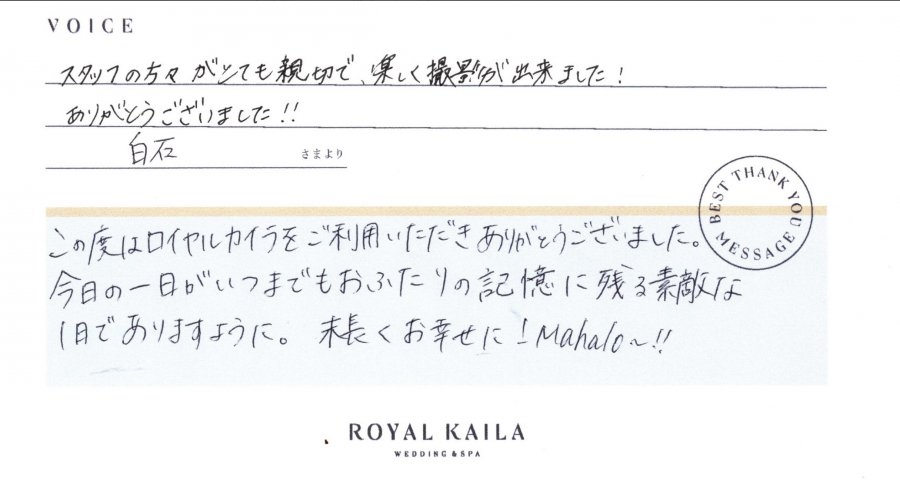 VOICE
スタッフの方々がとても親切で、楽しく撮影が出来ました!
ありがとうございました!!
白石
さまより
BEST THANK YOU MESSAGE
この度はロイヤルカイラをご利用いただきありがとうございました。
今日の一日がいつまでもおふたりの記憶に残る素敵な
1日でありますように。 末長くお幸せに!Mahalo~!!
ROYAL KAILA
WEDDING & SPA